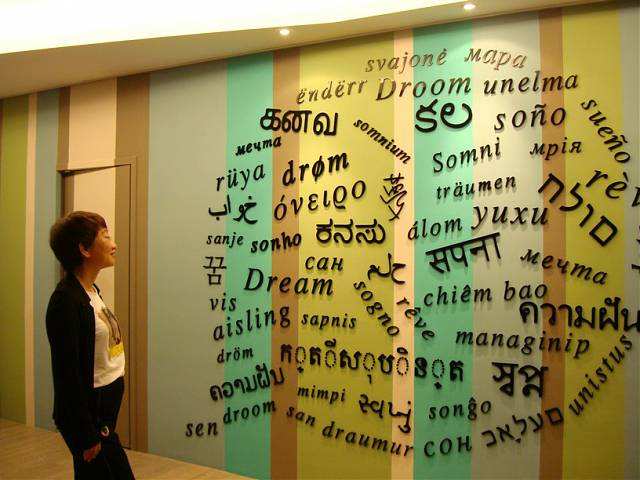 svajonė мара
ëndërr Droom unelma
கனவு somnium కల soño sueño
мечта Somni мрія
rüya drøm träumen
خواب όνειρο álom yuxu חלום
sanje sonho ಕನಸು सपना
꿈 сан мечта
Dream sogno rêve chiêm bao
vis ความฝัน
aisling sapnis managinip
dröm unistus
ຄວາມຝັນ স্বপ্ন
mimpi სიზმარი songo
sen droom san draumur сон